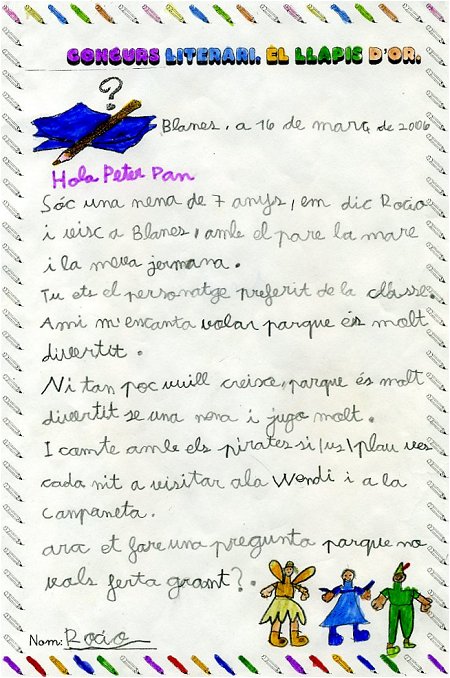 CONCURS LITERARI. EL LLAPIS D'OR.
?
Blanes, a 16 de març de 2006
Hola Peter Pan
Sóc una nena de 7 anys, em dic Rocio
i visc a Blanes, amb el pare la mare
i la meva jermana.
Tu ets el personatge preferit de la clásse.
Ami m'encanta volar parque és molt
divertit.
Ni tan poc vuill creixe, parque és molt
divertit se una nena i jugo molt.
I camte amb els pirates si/us/plau ves
cada nit a visitar ala Wendi i a la
Canpaneta.
ara et fare una pregunta parque no
vols ferta grant?.
Nom: Rocio